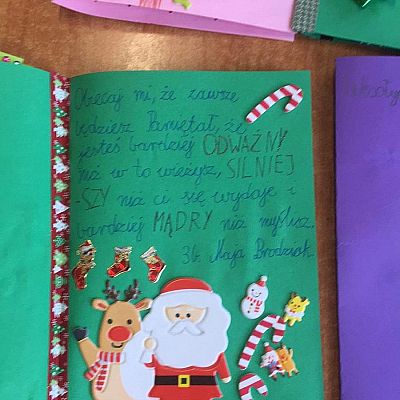 Obiecaj mi, że zawsze
będziesz Pamiętał, że
jesteś bardziej ODWAŻNY
niż w to wieżysz, SILNIEJ
-SZY niż ci się wydaje i
bardziej MĄDRY niż myślisz.
3b. Maja Brodziak